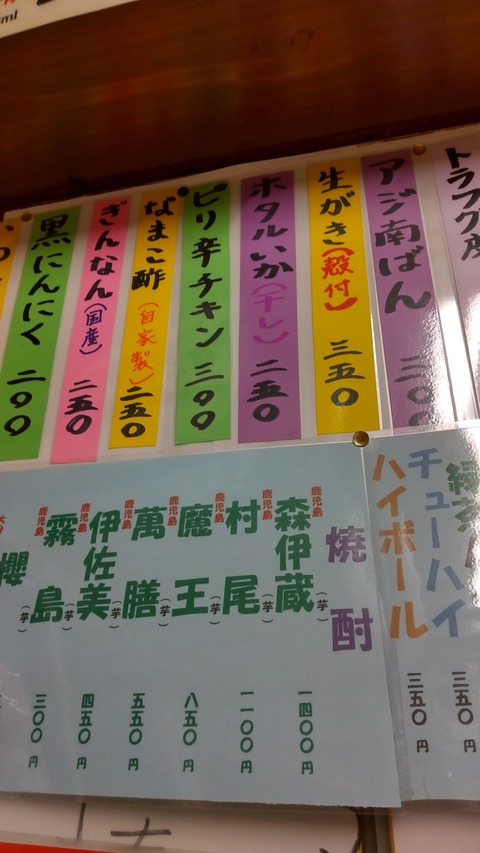 トラフグ皮
アジ南ばん 三〇〇
生がき(殻付) 三五〇
ホタルいか(干し) 二五〇
ピリ辛チキン 三九九
なまこ酢(自家製) 二五〇
ぎんなん(国産) 二五〇
黒にんにく 二〇〇
三五〇円
チューハイ
ハイボール 三五〇円
焼酎
鹿児島 森伊蔵(芋) 一四〇〇円
鹿児島 村尾(芋) 一一〇〇円
鹿児島 魔王(芋) 八五〇円
鹿児島 萬膳(芋) 五五〇円
鹿児島 伊佐美(芋) 四五〇円
鹿児島 霧島(芋) 三〇〇円
櫻(芋)